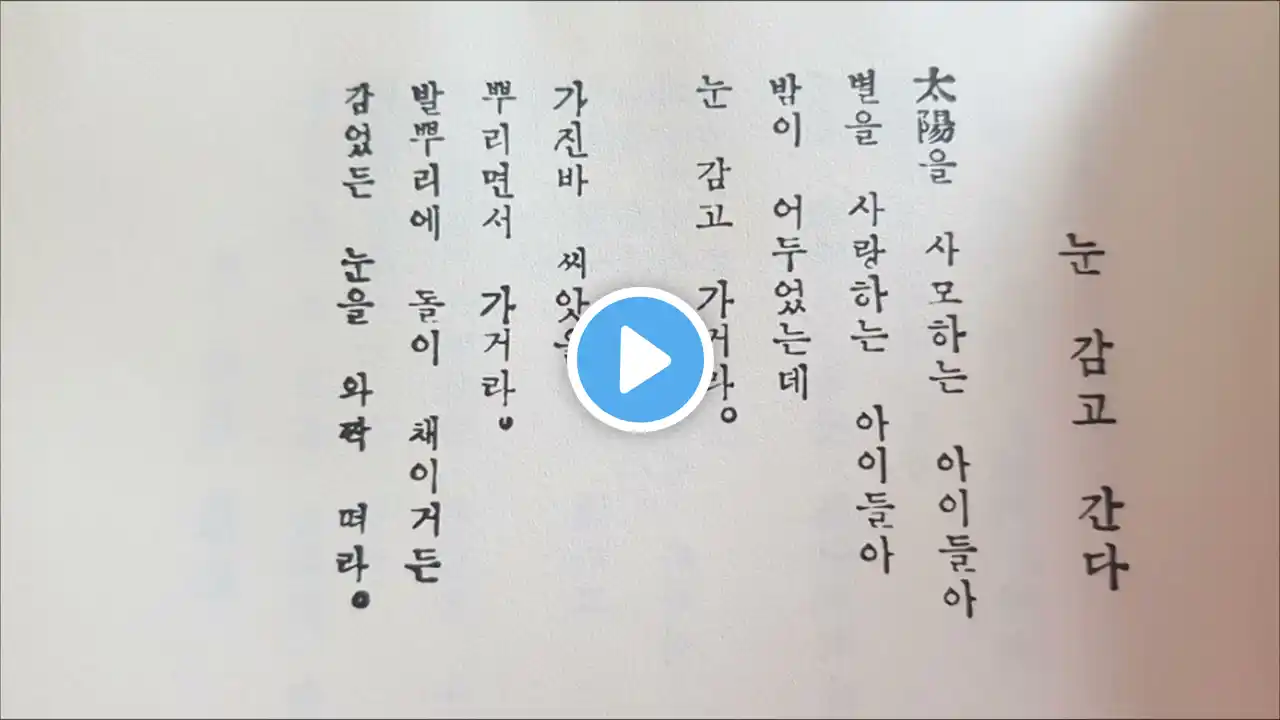 눈 감고 간다
太陽을 사모하는 아이들아
별을 사랑하는 아이들아
밤이 어두었는데
눈 감고 가거라。
가진바 씨앗을
뿌리면서 가거라。
발뿌리에 돌이 채이거든
감었든 눈을 와짝 떠라。